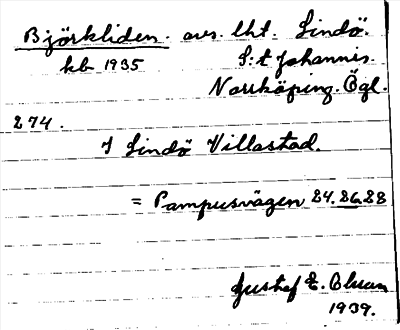 Björkliden. avs. lht. Lindö.
kb 1935 S:t Johannis.
Norrköping. Ögl.
274.
I Lindö Villastad.
= Pampusvägen 24.26.28
Gustaf E. Olsson
1939.